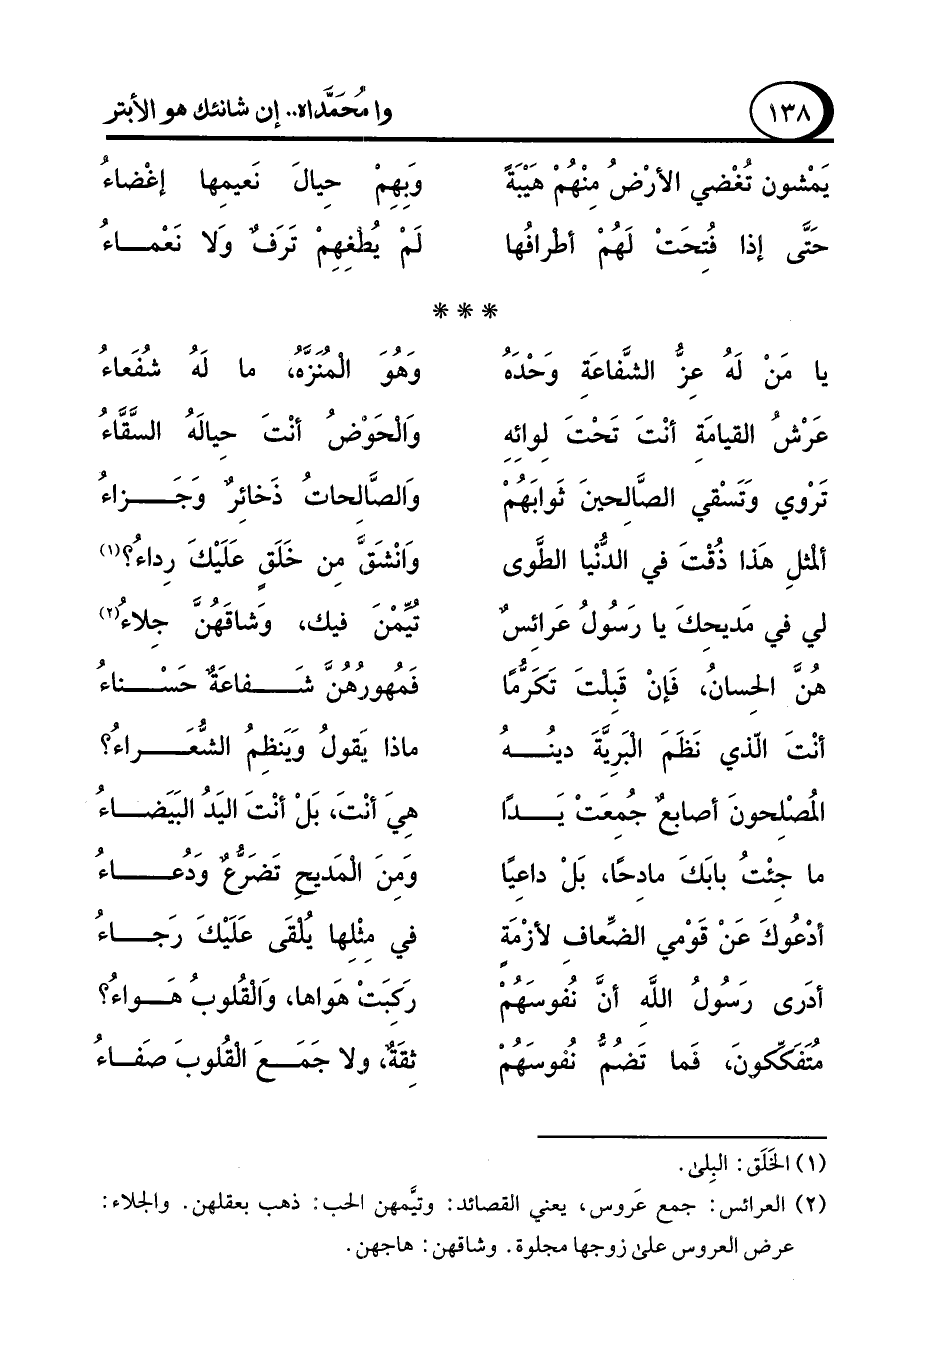 ١٣٨ وا مُحَمَّداه.. إن شانئك هو الأبتر
يَمْشُون تُغْضي الأرْضُ مِنْهُمْ هَيْبَةً وَبِهِمْ حِيالَ نَعيمِها إغْضاءُ
حَتَّى إذا فُتِحَتْ لَهُمْ أطْرافُها لَمْ يُطْغِهِمْ تَرَفٌ وَلَا نَعْمـــاءُ
***
يا مَنْ لَهُ عِزُّ الشَّفاعَةِ وَحْدَهُ وَهُوَ الْمُنَزَّه، ما لَهُ شُفَعاءُ
عَرْشُ القيامَةِ أنْتَ تَحْتَ لِوائِهِ وَالْحَوْضُ أنْتَ حِيالَهُ السَّقَّاءُ
تَرْوِي وَتَسْقي الصَّالِحينَ ثَوابَهُمْ وَالصَّالِحاتُ ذَخائِرٌ وَجَـــزاءُ
ألِمْثلِ هَذا ذُقْتَ في الدُّنْيا الطَّوى وَانْشَقَّ مِن خَلَقٍ عَلَيْكَ رِداءُ؟(١)
لي في مَديحِكَ يا رَسُولُ عَرائِسٌ تُيِّمْنَ فيك، وَشاقَهُنَّ جِلاءُ(٢)
هُنَّ الحِسانُ، فَإنْ قَبِلْتَ تَكَرُّمًا فَمُهورُهُنَّ شَـــفاعَةٌ حَسْـــناءُ
أنْتَ الّذي نَظَمَ الْبَرِيَّةَ دينُـــهُ ماذا يَقولُ وَيَنظِمُ الشُّعَـــراءُ؟
المُصْلِحونَ أصابِعٌ جُمِعَتْ يَـــدًا هِيَ أنْتَ، بَلْ أنْتَ اليَدُ البَيَضـــاءُ
ما جِئْتُ بابَكَ مادِحًا، بَلْ داعِيًا وَمِنَ الْمَديحِ تَضَرُّعٌ وَدُعـــاءُ
أدْعُوكَ عَنْ قَوْمي الضِّعافِ لأزْمَةٍ في مِثْلِها يُلْقَى عَلَيْكَ رَجـــاءُ
أدَرى رَسُولُ اللَّهِ أنَّ نُفوسَهُمْ رَكِبَتْ هَواها، وَالْقُلوبُ هَـــواءُ؟
مُتَفَكِّكونَ، فَما تَضُمُّ نُفوسَهُمْ ثِقَةٌ، ولا جَمَـــعَ الْقُلوبَ صَفـاءُ
(١) الخَلَق: البِلىٰ.
(٢) العرائس: جمع عَروس، يعني القصائد: وتيَّمهن الحب: ذهب بعقلهن. والجلاء:
عرض العروس علىٰ زوجها مجلوة. وشاقهن: هاجهن.